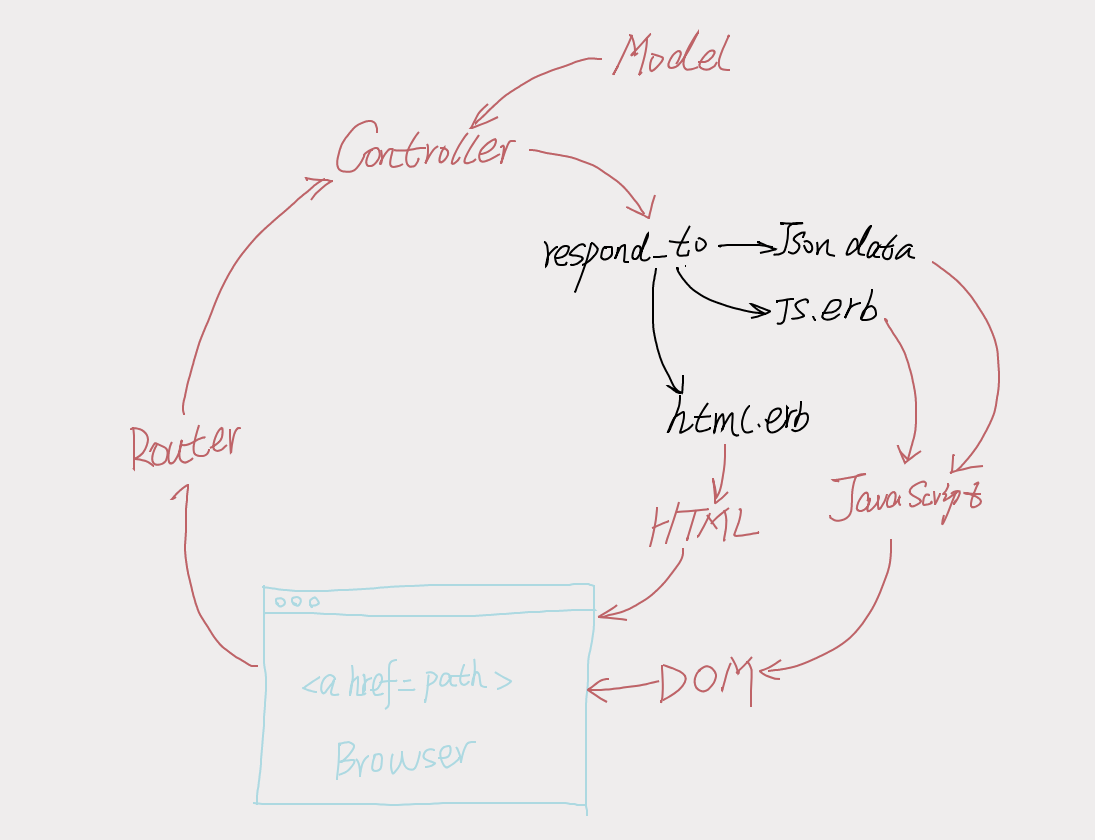 Model
Controller
respond_to
Json data
Js.erb
html.erb
Router
JavaScript
HTML
<a href=path>
DOM
Browser